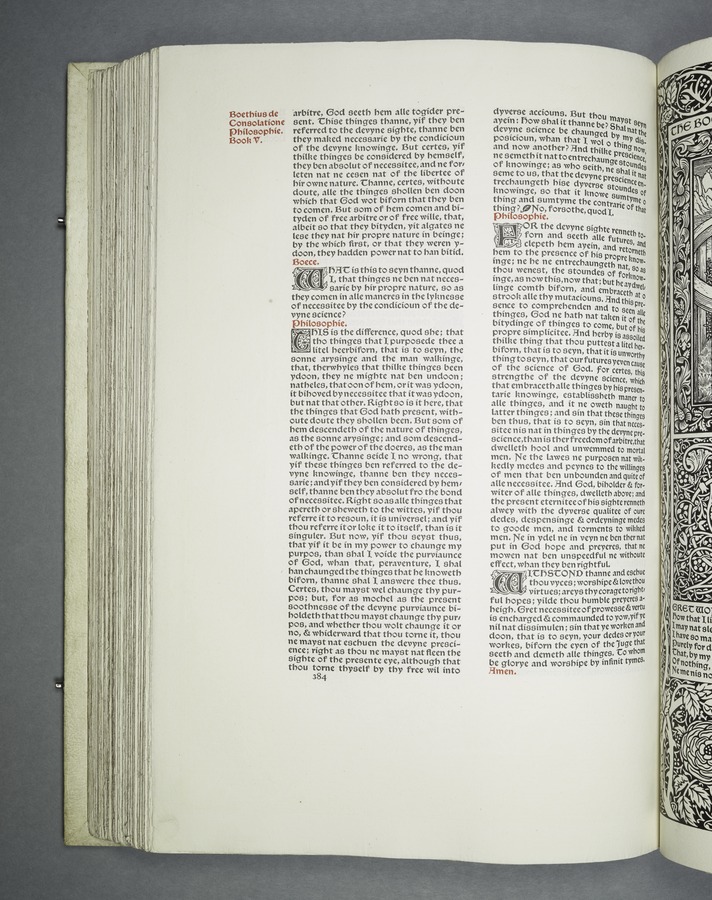 Boethius de
Consolatione
Philosophie.
Book V.
arbitre, God seeth hem alle togider pre-
sent. Thise thinges thanne, yif they ben
referred to the devyne sighte, thanne ben
they maked necessarie by the condicioun
of the devyne knowinge. But certes, yif
thilke thinges be considered by hemself,
they ben absolut of necessitee, and ne for-
leten nat ne cesen nat of the libertee of
hir owne nature. Thanne, certes, withoute
doute, alle the thinges shollen ben doon
which that God wot biforn that they ben
to comen. But som of hem comen and bi-
tyden of free arbitre or of free wille, that,
albeit so that they bityden, yit algates ne
lese they nat hir propre nature in beinge;
by the which first, or that they weren y-
doon, they hadden power nat to han bitid.
Boece.
WHAT is this to seyn thanne, quod
I, that thinges ne ben nat neces-
sarie by hir propre nature, so as
they comen in alle maneres in the lyknesse
of necessitee by the condicioun of the de-
vyne science?
Philosophie.
THIS is the difference, quod she; that
tho thinges that I purposede thee a
litel heerbiforn, that is to seyn, the
sonne arysinge and the man walkinge,
that, therwhyles that thilke thinges been
ydoon, they ne mighte nat ben undoon;
natheles, that oon of hem, or it was ydoon,
it bihoved by necessitee that it was ydoon,
but nat that other. Right so is it here, that
the thinges that God hath present, with-
oute doute they shollen been. But som of
hem descendeth of the nature of thinges,
as the sonne arysinge; and som descend-
eth of the power of the doeres, as the man
walkinge. Thanne seide I no wrong, that
yif these thinges ben referred to the de-
vyne knowinge, thanne ben they neces-
sarie; and yif they ben considered by hem-
self, thanne ben they absolut fro the bond
of necessitee. Right so as alle thinges that
apereth or sheweth to the wittes, yif thou
referre it to resoun, it is universel; and yif
thou referre it or loke it to itself, than is it
singuler. But now, yif thou seyst thus,
that yif it be in my power to chaunge my
purpos, than shal I voide the purviaunce
of God, whan that, peraventure, I shal
han chaunged the thinges that he knoweth
biforn, thanne shal I answere thee thus.
Certes, thou mayst wel chaunge thy pur-
pos; but, for as mochel as the present
soothnesse of the devyne purviaunce bi-
holdeth that thou mayst chaunge thy pur-
pos, and whether thou wolt chaunge it or
no, & whiderward that thou torne it, thou
ne mayst nat eschuen the devyne presci-
ence; right as thou ne mayst nat fleen the
sighte of the presente eye, although that
thou torne thyself by thy free wil into
184
dyverse acciouns. But thou mayst seyn
ayein: How shal it thanne be? Shal nat the
devyne science be chaunged by my dis-
posicioun, whan that I wol o thing now,
and now another? And thilke prescience,
ne semeth it nat to entrechaunge stoundes
of knowinge; as who seith, ne shal it nat
seme to us, that the devyne prescience en-
trechaungeth hise dyverse stoundes of
knowinge, so that it knowe sumtyme o
thing and sumtyme the contrarie of that
thing? No, forsothe, quod I.
Philosophie.
FOR the devyne sighte renneth to-
forn and seeth alle futures, and
clepeth hem ayein, and retorneth
hem to the presence of his propre know-
inge; ne he ne entrechaungeth nat, so as
thou wenest, the stoundes of forknow-
inge, as now this, now that; but he aydwel-
linge comth biforn, and embraceth at o
strook alle thy mutaciouns. And this pre-
sence to comprehenden and to seen alle
thinges, God ne hath nat taken it of the
bitydinge of thinges to come, but of his
propre simplicitee. And herby is assoiled
thilke thing that thou puttest a litel her-
biforn, that is to seyn, that it is unworthy
thing to seyn, that our futures yeven cause
of the science of God. For certes, this
strengthe of the devyne science, which
that embraceth alle thinges by his presen-
tarie knowinge, establissheth maner to
alle thinges, and it ne oweth naught to
latter thinges; and sin that these thinges
ben thus, that is to seyn, sin that neces-
sitee nis nat in thinges by the devyne pre-
science, than is ther freedom of arbitre, that
dwelleth hool and unwemmed to mortal
men. Ne the lawes ne purposen nat wik-
kedly medes and peynes to the willinges
of men that ben unbounden and quite of
alle necessitee. And God, biholder & for-
witer of alle thinges, dwelleth above; and
the present eternitee of his sighte renneth
alwey with the dyverse qualitee of oure
dedes, despensinge & ordeyninge medes
to goode men, and torments to wikked
men. Ne in ydel ne in veyn ne ben ther nat
put in God hope and preyeres, that ne
mowen nat ben unspeedful ne withoute
effect, whan they ben rightful.
WITHSTOND thanne and eschue
thou vyces; worshipe & love thou
virtues; areys thy corage to right-
ful hopes; yilde thou humble preyeres a-
heigh. Gret necessitee of prowesse & vertu
is encharged & commaunded to yow, yif ye
nil nat dissimulen; sin that ye worken and
doon, that is to seyn, your dedes or your
workes, biforn the eyen of the Juge that
seeth and demeth alle thinges. To whom
be glorye and worshipe by infinit tymes.
Amen.
THE BO
GRET WO
How that I li
I may nat sle
I have so ma
Purely for d
That, by my
Of nothing,
Ne me nis no